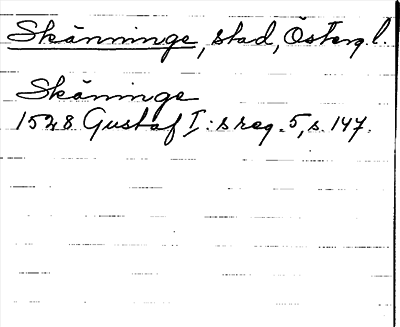 Skänninge, stad, Österg l.
Skäninge
1528 Gustaf I:s reg. 5, s. 147.